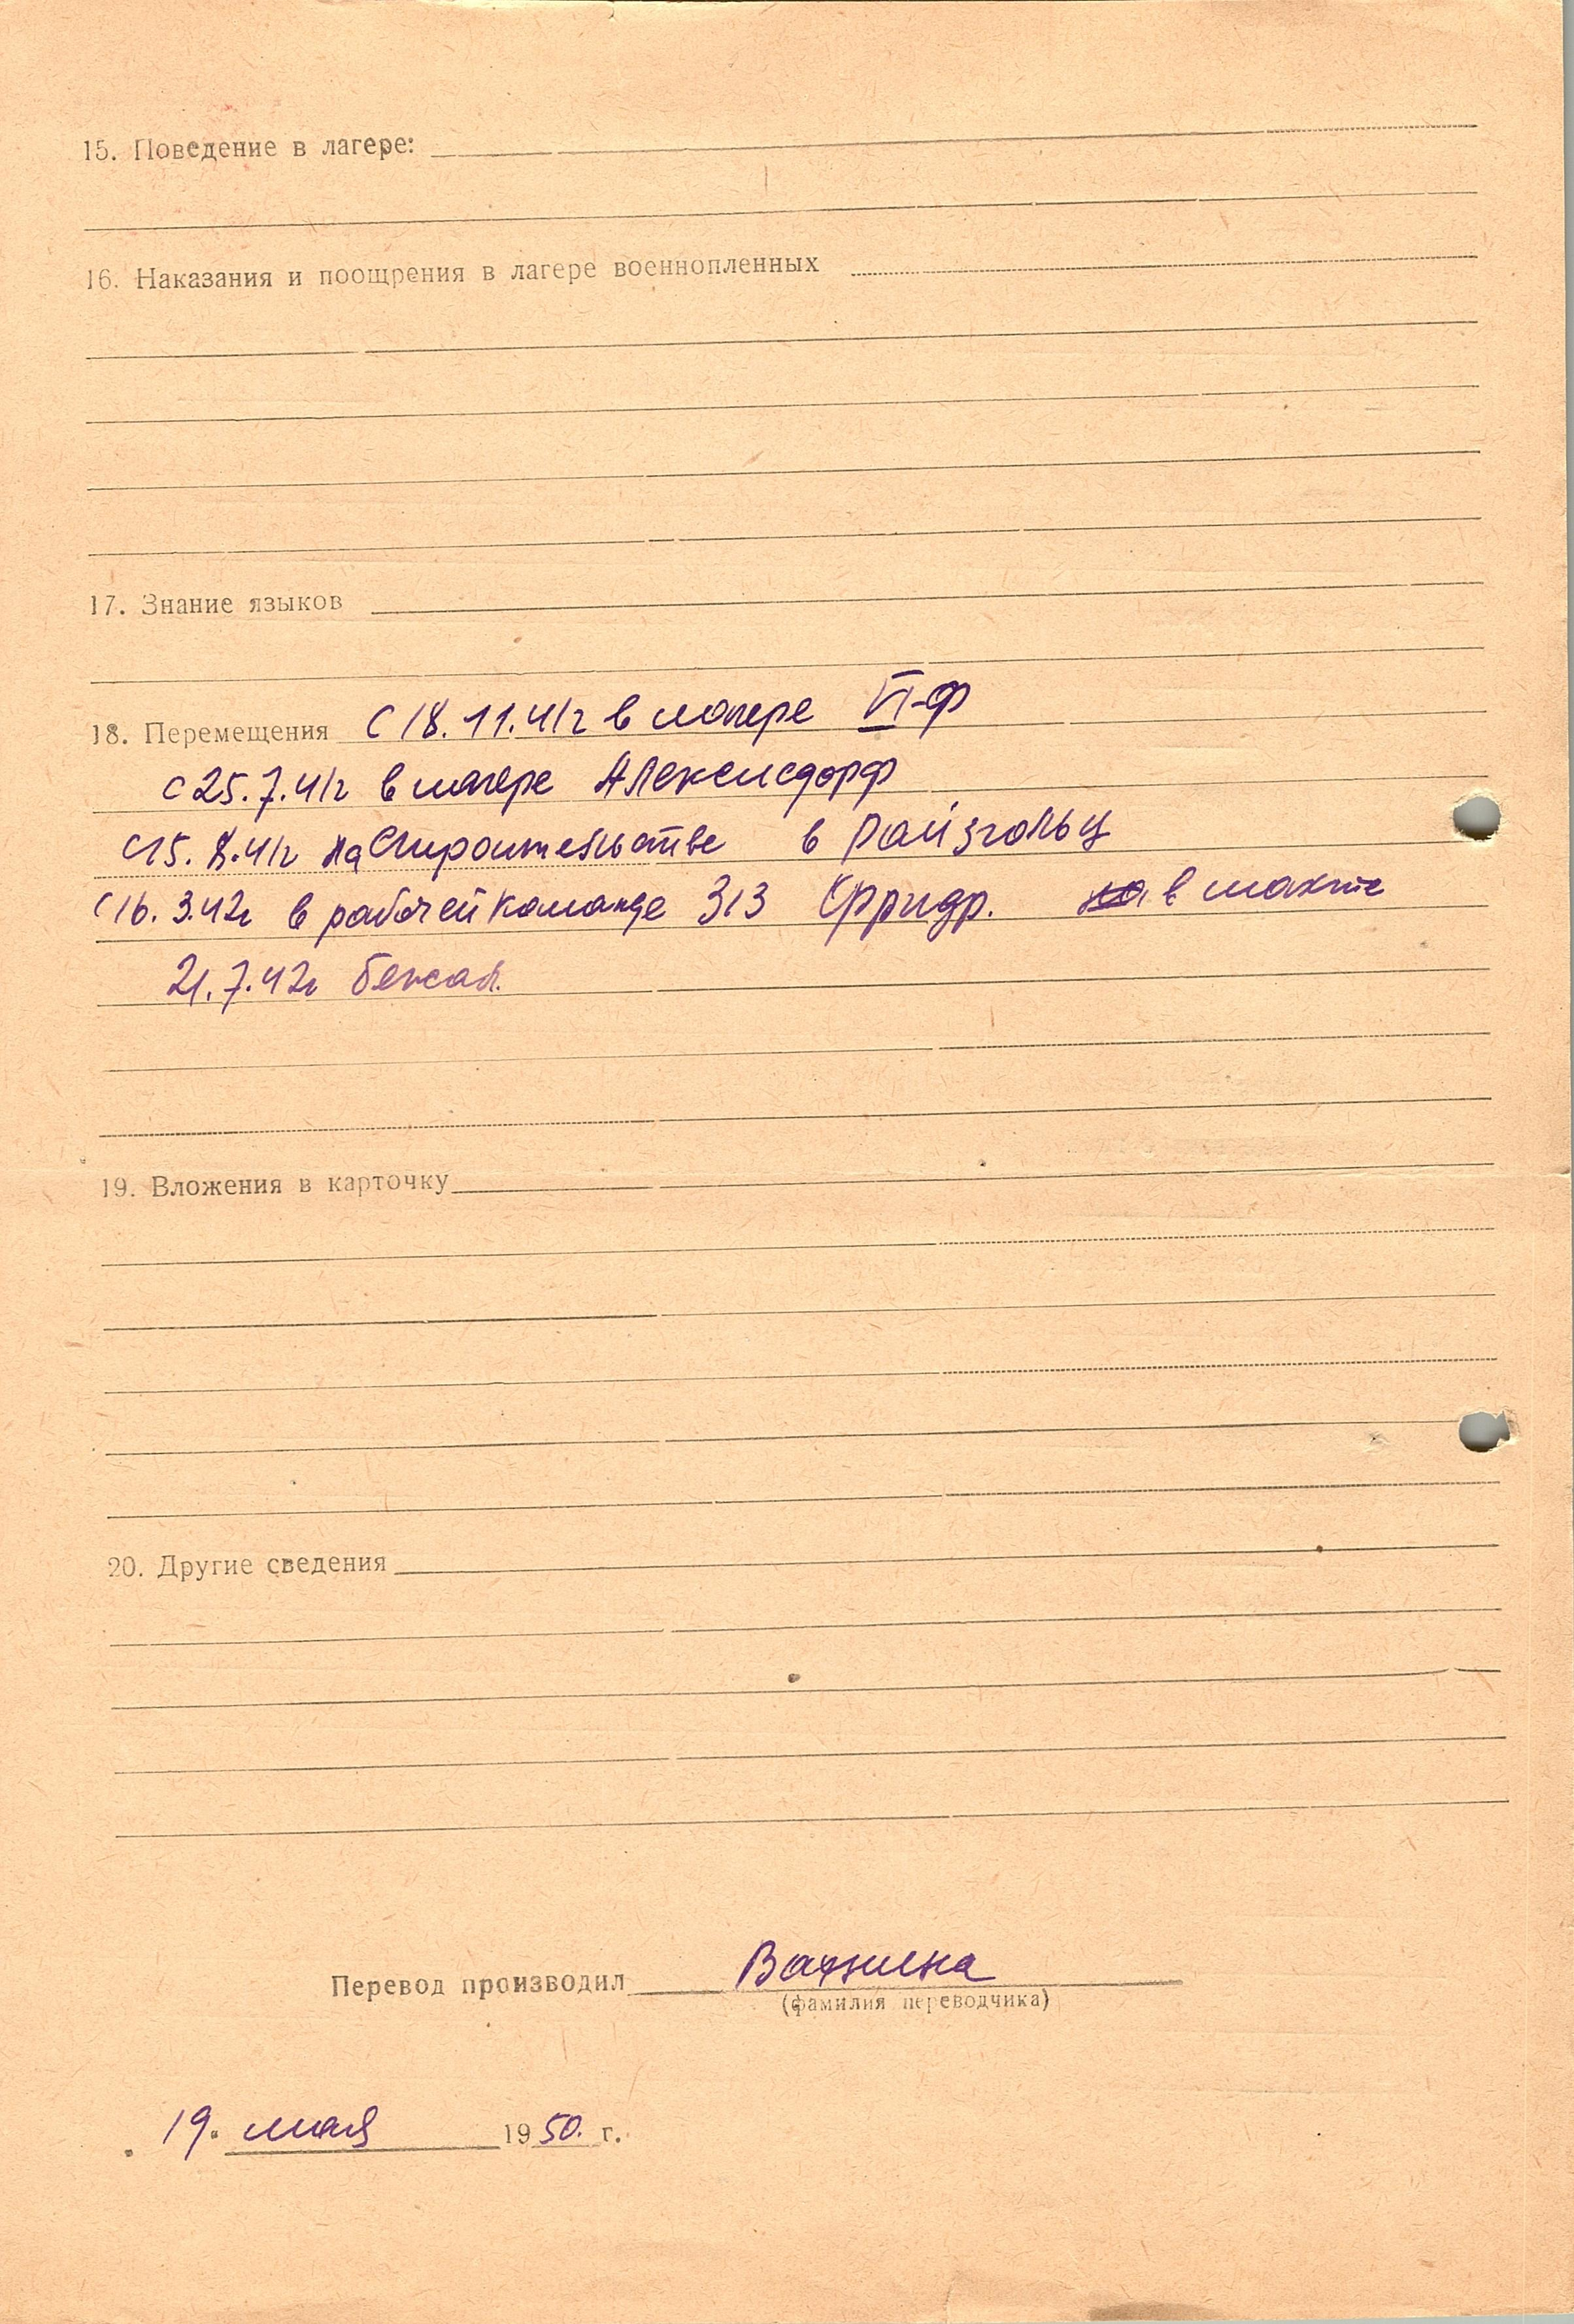 15. Поведение в лагере:
16. Наказания и поощрения в лагере военнопленных
17. Знание языков
18. Перемещения С 18.11.41г в лагере VI-Ф
с 25.7.41г в лагере Алексисдорф
С 15.8.41г на строительстве в Райзгольц
С 16.3.42г в рабочей команде 313 Фридр. на в шахте
21.7.42г бежал.
19. Вложения в карточку
20. Другие сведения
Перевод производил
(фамилия переводчика)
19. мая 1950. г.